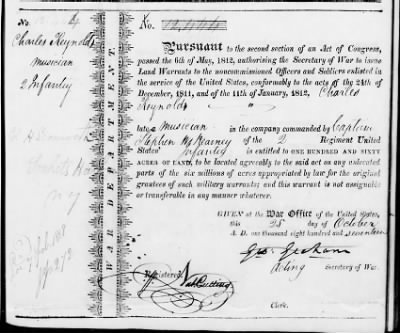 No.
Charles Reynolds
Musician
2 Infantry
WAR DEPARTMENT
No.
Pursuant to the second section of an Act of Congress,
passed the 6th of May, 1812, authorising the Secretary of War to issue
Land Warrants to the noncommissioned Officers and Soldiers enlisted in
the service of the United States, conformably to the acts of the 24th
December, 1811, and of the 11th of January, 1812, Charles
Reynolds
late a Musician in the company commanded by Captain
Stephen W. Kearney of the 2 Regiment United
States' Infantry is entitled to ONE HUNDRED AND SIXTY
ACRES OF LAND, to be located agreeably to the said act on any unlocated
parts of the six millions of acres appropriated by law for the original
grantees of such military warrants; and this warrant is not assignable
or transferable in any manner whatever.
GIVEN at the War Office of the United States,
this 25 day of October
A. D. one thousand eight hundred and seventeen
Geo: Graham
Acting Secretary of War.
Registered Nat Cutting
Clerk.